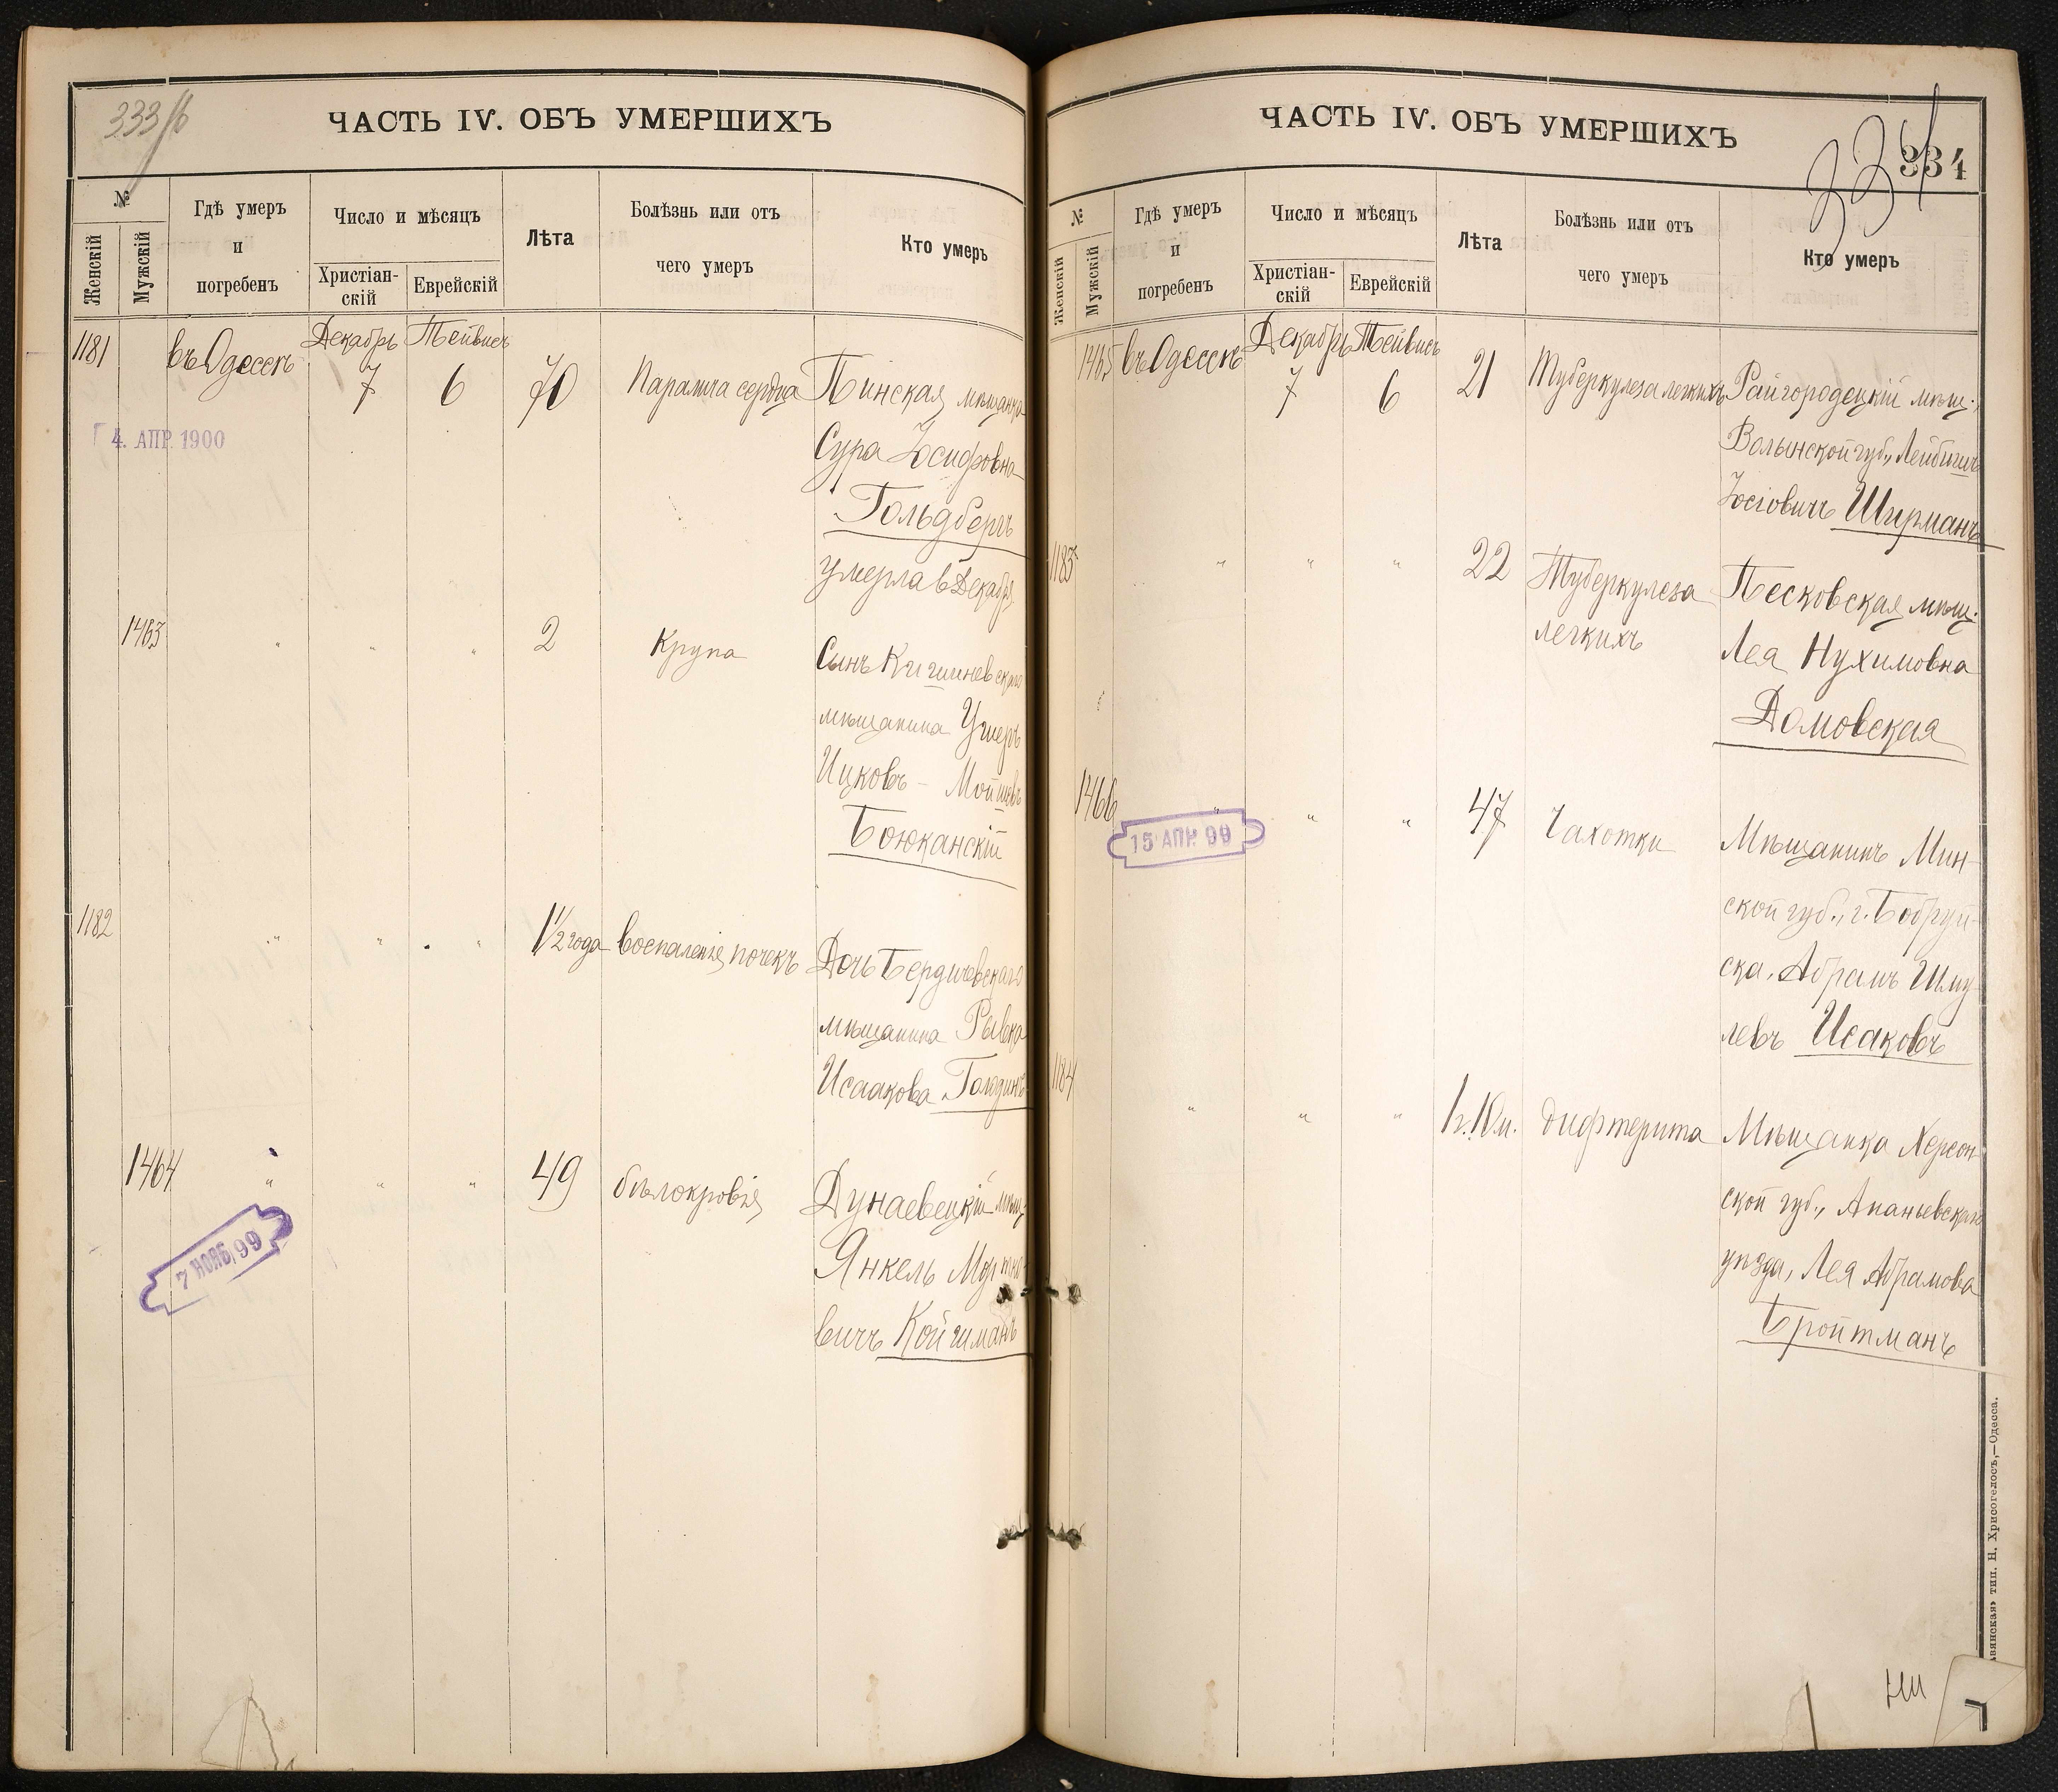 333/б
ЧАСТЬ IV. ОБЪ УМЕРШИХЪ
№
Женскій
Мужскій
Гдѣ умеръ
и
погребенъ
Число и мѣсяцъ
Христіан-
скій
Еврейскій
Лѣта
Болѣзнь или отъ
чего умеръ
Кто умеръ
1181 въ Одессѣ Декабрь 7 Тейвисъ 6 70 Паралича сердца Пинская мѣщанка
Сура Іосифовна
Гольдбергъ
умерла в Декабрѣ
4. АПР. 1900
1463 " " " 2 Крупа Сынъ Кишиневскаго
мѣщанина Ушеръ
Ицковъ - Мойшовъ
Боюканскій
1182 " " " 1½ года воспаленія почекъ Дочь Бердичевскаго
мѣщанина Рывка
Исаакова
1464 " " " 49 бѣлокровія Дунаевецкій мѣщ.
Янкель
вичъ Койшманъ
7 НОЯБ. 99
ЧАСТЬ IV. ОБЪ УМЕРШИХЪ
334
334
№
Женскій
Мужскій
Гдѣ умеръ
и
погребенъ
Число и мѣсяцъ
Христіан-
скій
Еврейскій
Лѣта
Болѣзнь или отъ
чего умеръ
Кто умеръ
1465 въ Одессѣ Декабрь 7 Тейвисъ 6 21 Туберкулеза легкихъ Райгородецкій мѣщ.,
Волынской губ.,
Іосіовичъ Ширманъ
1183 " " " 22 Туберкулеза Песковская мѣщ.
легкихъ Лея Нухимовна
Домовская
1466 " " " 47 Чахотки Мѣщанинъ Мин-
ской губ., г. Бобруй-
ска, Абрамъ Шму-
левъ Исаковъ
15 АПР. 99
1184 " " " 1 г. 10 м. дифтерита Мѣщанка Херсон-
ской губ., Ананьевскаго
уѣзда, Лея Абрамова
Бройтманъ
тип. Н. Хрисогелосъ,—Одесса.